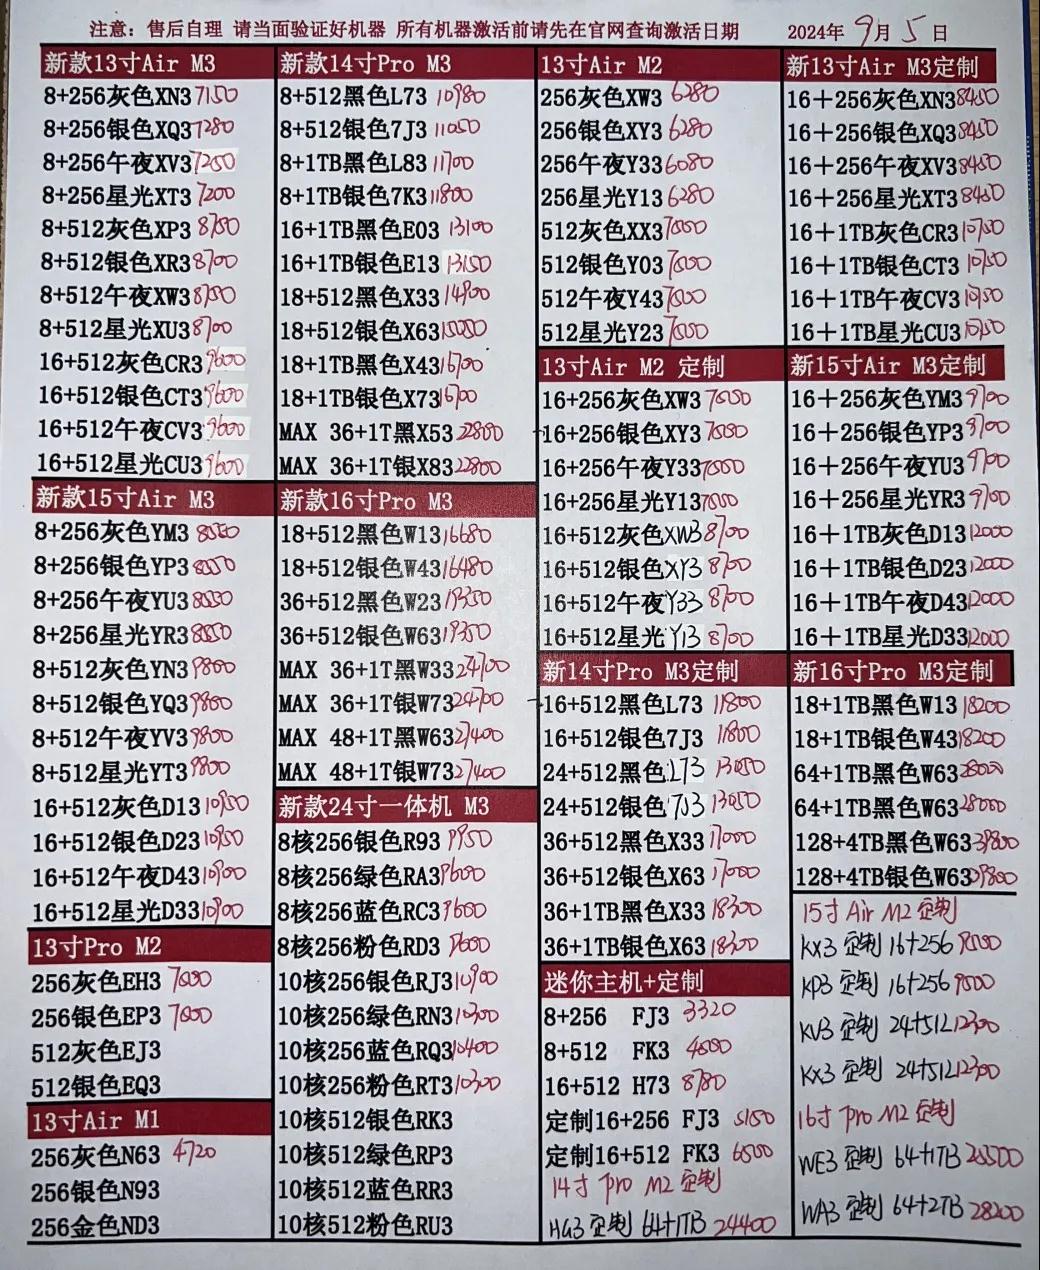 注意：售后自理 请当面验证好机器 所有机器激活前请先在官网查询激活日期 2024年9月5日
新款13寸Air M3
8+256灰色XN3 7150
8+256银色XQ3 7280
8+256午夜XV3 7250
8+256星光XT3 7200
8+512灰色XP3 8750
8+512银色XR3 8700
8+512午夜XW3 8750
8+512星光XU3 8700
16+512灰色CR3 9600
16+512银色CT3 9600
16+512午夜CV3 9600
16+512星光CU3 9600
新款15寸Air M3
8+256灰色YM3 8550
8+256银色YP3 8550
8+256午夜YU3 8550
8+256星光YR3 8550
8+512灰色YN3 9800
8+512银色YQ3 9800
8+512午夜YV3 9800
8+512星光YT3 9800
16+512灰色D13 10950
16+512银色D23 10950
16+512午夜D43 10900
16+512星光D33 10900
13寸Pro M2
256灰色EH3 7800
256银色EP3 7800
512灰色EJ3
512银色EQ3
13寸Air M1
256灰色N63 4720
256银色N93
256金色ND3
新款14寸Pro M3
8+512黑色L73 10980
8+512银色7J3 11050
8+1TB黑色L83 11700
8+1TB银色7K3 11800
16+1TB黑色E03 13100
16+1TB银色E13 13150
18+512黑色X33 14900
18+512银色X63 15050
18+1TB黑色X43 16700
18+1TB银色X73 16700
MAX 36+1T黑X53 22800
MAX 36+1T银X83 22800
新款16寸Pro M3
18+512黑色W13 16680
18+512银色W43 16480
36+512黑色W23 19350
36+512银色W63 19350
MAX 36+1T黑W33 24700
MAX 36+1T银W73 24700
MAX 48+1T黑W63 27400
MAX 48+1T银W73 27400
新款24寸一体机 M3
8核256银色R93 9950
8核256绿色RA3 9600
8核256蓝色RC3 9600
8核256粉色RD3 9600
10核256银色RJ3 10900
10核256绿色RN3 10300
10核256蓝色RQ3 10400
10核256粉色RT3 10300
10核512银色RK3
10核512绿色RP3
10核512蓝色RR3
10核512粉色RU3
13寸Air M2
256灰色XW3 6280
256银色XY3 6280
256午夜Y33 6080
256星光Y13 6280
512灰色XX3 7500
512银色Y03 7500
512午夜Y43 7500
512星光Y23 7500
13寸Air M2 定制
16+256灰色XW3 7050
16+256银色XY3 7050
16+256午夜Y33 7050
16+256星光Y13 7050
16+512灰色XW3 8700
16+512银色XY3 8700
16+512午夜Y33 8700
16+512星光Y13 8700
新14寸Pro M3定制
16+512黑色L73 11800
16+512银色7J3 11800
24+512黑色L73 13050
24+512银色7J3 13050
36+512黑色X33 17000
36+512银色X63 17000
36+1TB黑色X33 18300
36+1TB银色X63 18300
迷你主机+定制
8+256 FJ3 3320
8+512 FK3 4800
16+512 H73 8780
定制16+256 FJ3 5150
定制16+512 FK3 6500
14寸 pro M2 定制
HG3 定制 64+1TB 24400
新13寸Air M3定制
16＋256灰色XN3 8450
16＋256银色XQ3 8450
16＋256午夜XV3 8450
16＋256星光XT3 8450
16＋1TB灰色CR3 10750
16＋1TB银色CT3 10750
16＋1TB午夜CV3 10750
16＋1TB星光CU3 10750
新15寸Air M3定制
16＋256灰色YM3 9700
16＋256银色YP3 9700
16＋256午夜YU3 9700
16＋256星光YR3 9700
16＋1TB灰色D13 12000
16＋1TB银色D23 12000
16＋1TB午夜D43 12000
16＋1TB星光D33 12000
新16寸Pro M3定制
18+1TB黑色W13 18200
18+1TB银色W43 18200
64+1TB黑色W63 28000
64+1TB黑色W63 28000
128+4TB黑色W63 39800
128+4TB银色W63 39800
15寸 Air M2 定制
KX3 定制 16+256
KP3 定制 16+256
KV3 定制 24+512 12300
KX3 定制 24+512 12300
16寸 pro M2 定制
WE3 定制 64+1TB
WA3 定制 64+2TB 28200